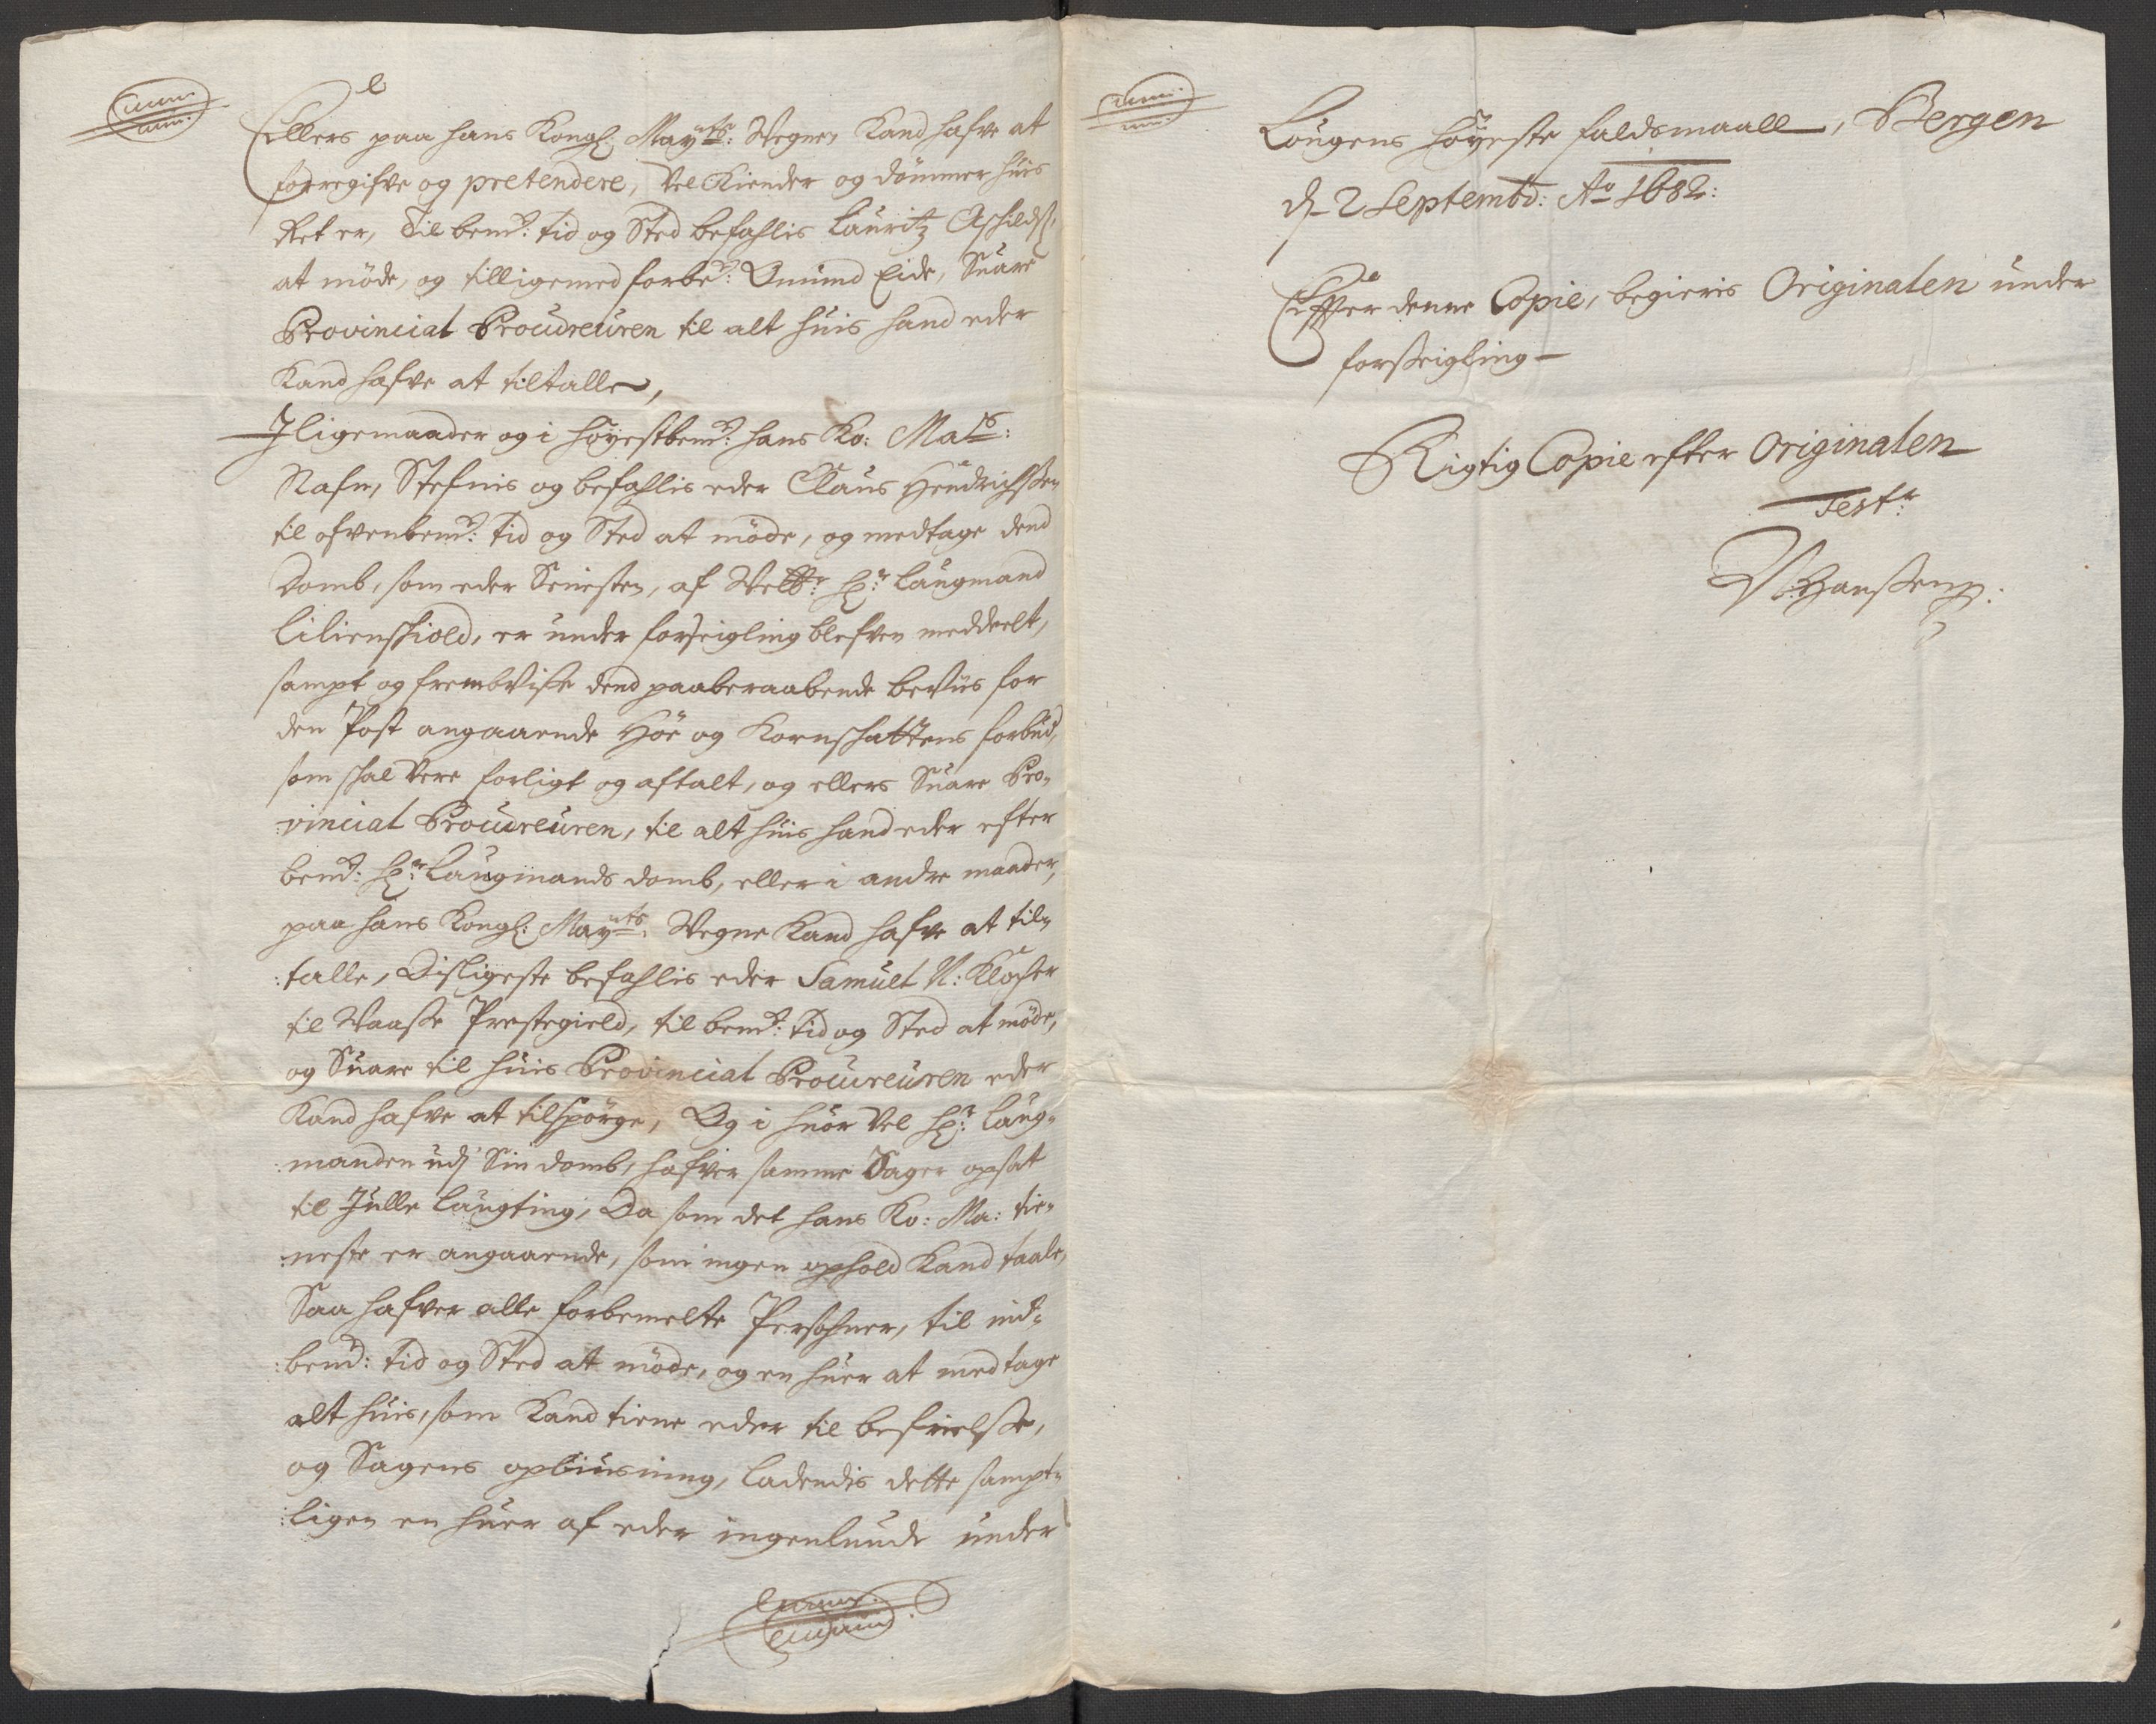 Ellers paa hans Kongl: Mayts: Wegne, Kand hafve at
forregifve og pretendere, Vel Kiender og dömmer huis
Ret er, Til bemt: tid og Sted befahlis Lauritz Aschildß:
at möde, og tilligemed forbe: Omund Eide, Suare
Provincial Procureuren til alt huis hand eder
Kand hafve at tiltalle,
Iligemaader og i höyestbemt: hans Ko: Mats:
Nafn, Stefnis og befahlis eder Claus Hendrichßen
til ofvenbemt: tid og Sted at möde, og medtage dend
Domb, som eder Seniesten, af Welb: Hr: Laugmand
Lilienschiold, er under forseigling blefven meddeelt,
sampt og frembvise dend paaberaabende beviis for
den Post angaaende Höe og Kornschattens forbud,
som schal Vere forligt og aftalt, og ellers Suare Pro-
vincial Procureuren, til alt huis hand eder efter
bemt: Hr: Laugmands domb, eller i andre maader,
paa hans Kongl: Mayts: Wegne Kand hafve at til-
:talle, Disligeste befahlis eder Samuel N: Klocker
til Waasse Prestegield, til bemt: tid og Sted at möde,
og Suare til huis Provincial Procureuren eder
Kand hafve at tilspörge, Og i huor Vel Hr: Laug-
:manden udj Sin domb, hafver samme Sager opsat
til Julle Laugting, Da som det hans Ko: Ma: tie-
:neste er angaaende, som ingen ophold Kand taale,
Saa hafver alle forbemelte Persohner, til ind-
:bemt: tid og Sted at möde, og en huer at medtage
alt huis, som Kand tiene eder til befrielße,
og Sagens opliusning, ladendis dette sampt-
:ligen en huer af eder ingenlunde under
Lougens höyeste faldsmaall, Bergen
d. 2 Septembr: Ao 1682:
Effter denne Copie, begieris Originalen under
forseigling
Rigtig Copie efter Originalen
Test:
Hanßen